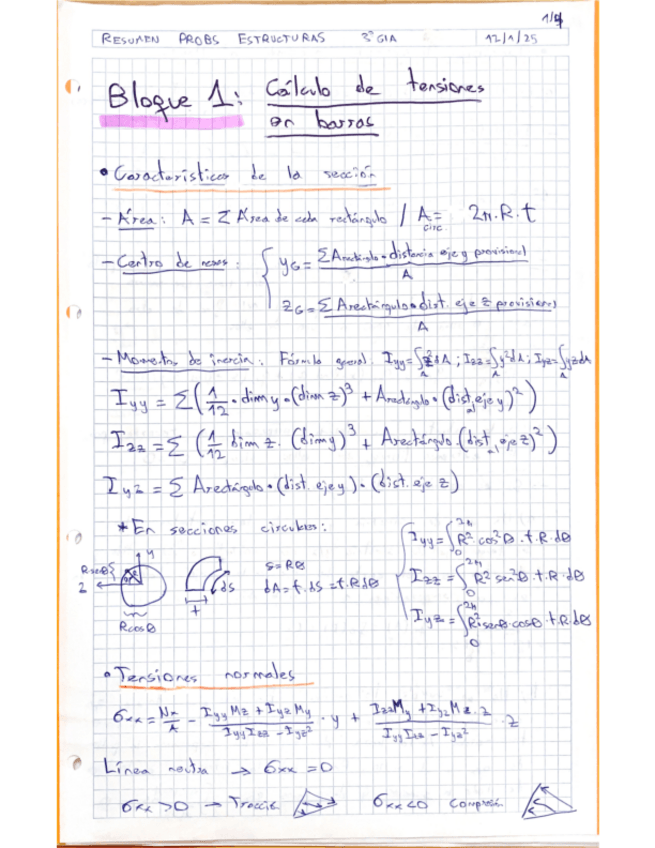 1/4
RESUMEN PROBS ESTRUCTURAS 3º GIA 12/1/25
Bloque 1: Cálculo de tensiones
en barras
• Características de la sección
- Área: A = Σ Área de cada rectángulo / A circ. = 2π·R·t
- Centro de masas: yG = ΣArectángulo·distancia eje y provisional / A
zG = Σ Arectángulo·dist. eje z provisional / A
- Momentos de inercia: Fórmula general: Iyy=∫A z²dA ; Izz=∫A y²dA ; Iyz=∫A yzdA
Iyy = Σ(1/12 · dim y · (dim z)³ + Arectángulo · (dist. al eje y)²)
Izz = Σ (1/12 dim z · (dim y)³ + Arectángulo · (dist. al eje z)²)
Iyz = Σ Arectángulo · (dist. eje y) · (dist. eje z)
* En secciones circulares:
Iyy = ∫0 2π R² cos²θ · t·R·dθ
y
Rsenθ
z
θ
ds
t
Rcosθ
s = Rθ
dA = t·ds = t·R dθ
Izz = ∫0 2π R² sen²θ · t·R·dθ
Iyz = ∫0 2π R² senθ·cosθ·t·R·dθ
• Tensiones normales
σxx = Nx/A - (Iyy Mz + Iyz My)/(Iyy Izz - Iyz²) · y + (Izz My + Iyz Mz · z)/(Iyy Izz - Iyz²) · z
Línea neutra → σxx = 0
σxx > 0 → Tracción σxx < 0 Compresión